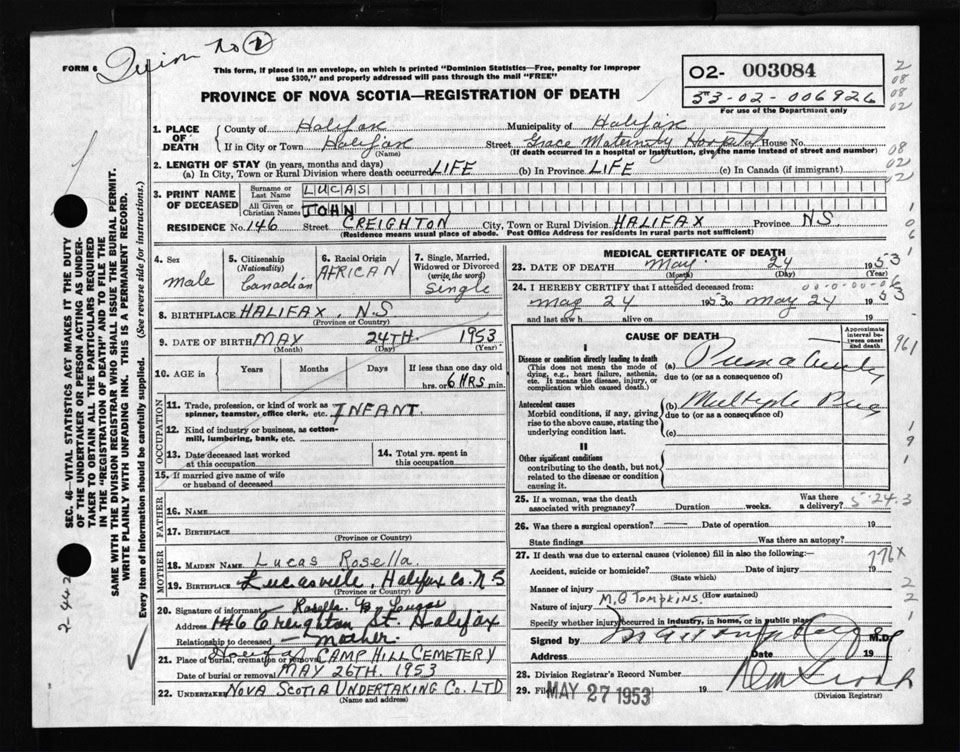 Twin No 2
FORM 6
This form, if placed in an envelope, on which is printed "Dominion Statistics—Free, penalty for improper
use $300," and properly addressed will pass through the mail "FREE"
02- 003084
53-02-006926
For use of the Department only
PROVINCE OF NOVA SCOTIA—REGISTRATION OF DEATH
2
08
08
02
08
02
02
1
0
6
1. PLACE OF DEATH
County of Halifax Municipality of Halifax
If in City or Town Halifax Street Grace Maternity Hospital House No.
(Name) (If death occurred in a hospital or institution, give the name instead of street and number)
2. LENGTH OF STAY (in years, months and days)
(a) In City, Town or Rural Division where death occurred LIFE (b) In Province LIFE (c) In Canada (if immigrant)
3. PRINT NAME OF DECEASED
Surname or Last Name LUCAS
All Given or Christian Names JOHN
RESIDENCE No. 146 Street CREIGHTON City, Town or Rural Division HALIFAX Province N.S.
(Residence means usual place of abode. Post Office Address for residents in rural parts not sufficient)
SEC. 46—VITAL STATISTICS ACT MAKES IT THE DUTY
OF THE UNDERTAKER OR PERSON ACTING AS UNDER-
TAKER TO OBTAIN ALL THE PARTICULARS REQUIRED
IN THE "REGISTRATION OF DEATH" AND TO FILE THE
SAME WITH THE DIVISION REGISTRAR WHO SHALL ISSUE THE BURIAL PERMIT.
WRITE PLAINLY WITH UNFADING INK. THIS IS A PERMANENT RECORD.
Every item of information should be carefully supplied. (See reverse side for instructions.)
4. Sex
male
5. Citizenship
(Nationality)
Canadian
6. Racial Origin
AFRICAN
7. Single, Married,
Widowed or Divorced
(write the word)
Single
8. BIRTHPLACE HALIFAX, N.S.
(Province or Country)
9. DATE OF BIRTH MAY 24TH. 1953
(Month) (Day) (Year)
10. AGE in Years Months Days If less than one day old
hrs. or 6 HRS min.
OCCUPATION
11. Trade, profession, or kind of work as
spinner, teamster, office clerk, etc. INFANT.
12. Kind of industry or business, as cotton-
mill, lumbering, bank, etc.
13. Date deceased last worked
at this occupation
14. Total yrs. spent in
this occupation
15. If married give name of wife
or husband of deceased
FATHER
16. NAME
17. BIRTHPLACE
(Province or Country)
MOTHER
18. MAIDEN NAME Lucas Rosella.
19. BIRTHPLACE Lucasville, Halifax Co. N S
(Province or Country)
20. Signature of informant Rosella
Address 146 Creighton St. Halifax
Relationship to deceased — Mother.
21. Place of burial, cremation or removal CAMP HILL CEMETERY
Date of burial or removal MAY 26TH. 1953
22. UNDERTAKER NOVA SCOTIA UNDERTAKING CO. LTD
(Name and address)
MEDICAL CERTIFICATE OF DEATH
23. DATE OF DEATH May 24 1953
(Month) (Day) (Year)
24. I HEREBY CERTIFY that I attended deceased from
May 24 1953 to May 24 1953
and last saw h alive on 19
CAUSE OF DEATH
Approximate
interval
between onset
and death
I
Disease or condition directly leading to death
(This does not mean the mode of
dying, e.g., heart failure, asthenia,
etc. It means the disease, injury, or
complication which caused death.)
(a)
due to (or as a consequence of)
Antecedent causes
Morbid conditions, if any, giving
rise to the above cause, stating the
underlying condition last.
(b) Multiple
due to (or as a consequence of)
(c)
II
Other significant conditions
contributing to the death, but not
related to the disease or condition
causing it.
961
1
9
1
25. If a woman, was the death
associated with pregnancy? Duration weeks. Was there
a delivery?
5-24-3
26. Was there a surgical operation? — Date of operation 19
State findings Was there an autopsy?
27. If death was due to external causes (violence) fill in also the following:—
Accident, suicide or homicide? Date of injury 19
(State which)
776X
Manner of injury
(How sustained)
Nature of injury M.G TOMPKINS.
Specify whether injury occurred in industry, in home, or in public place
Signed by M.D.
Address Date 19
28. Division Registrar's Record Number
29. Filed MAY 27 1953 19
(Division Registrar)